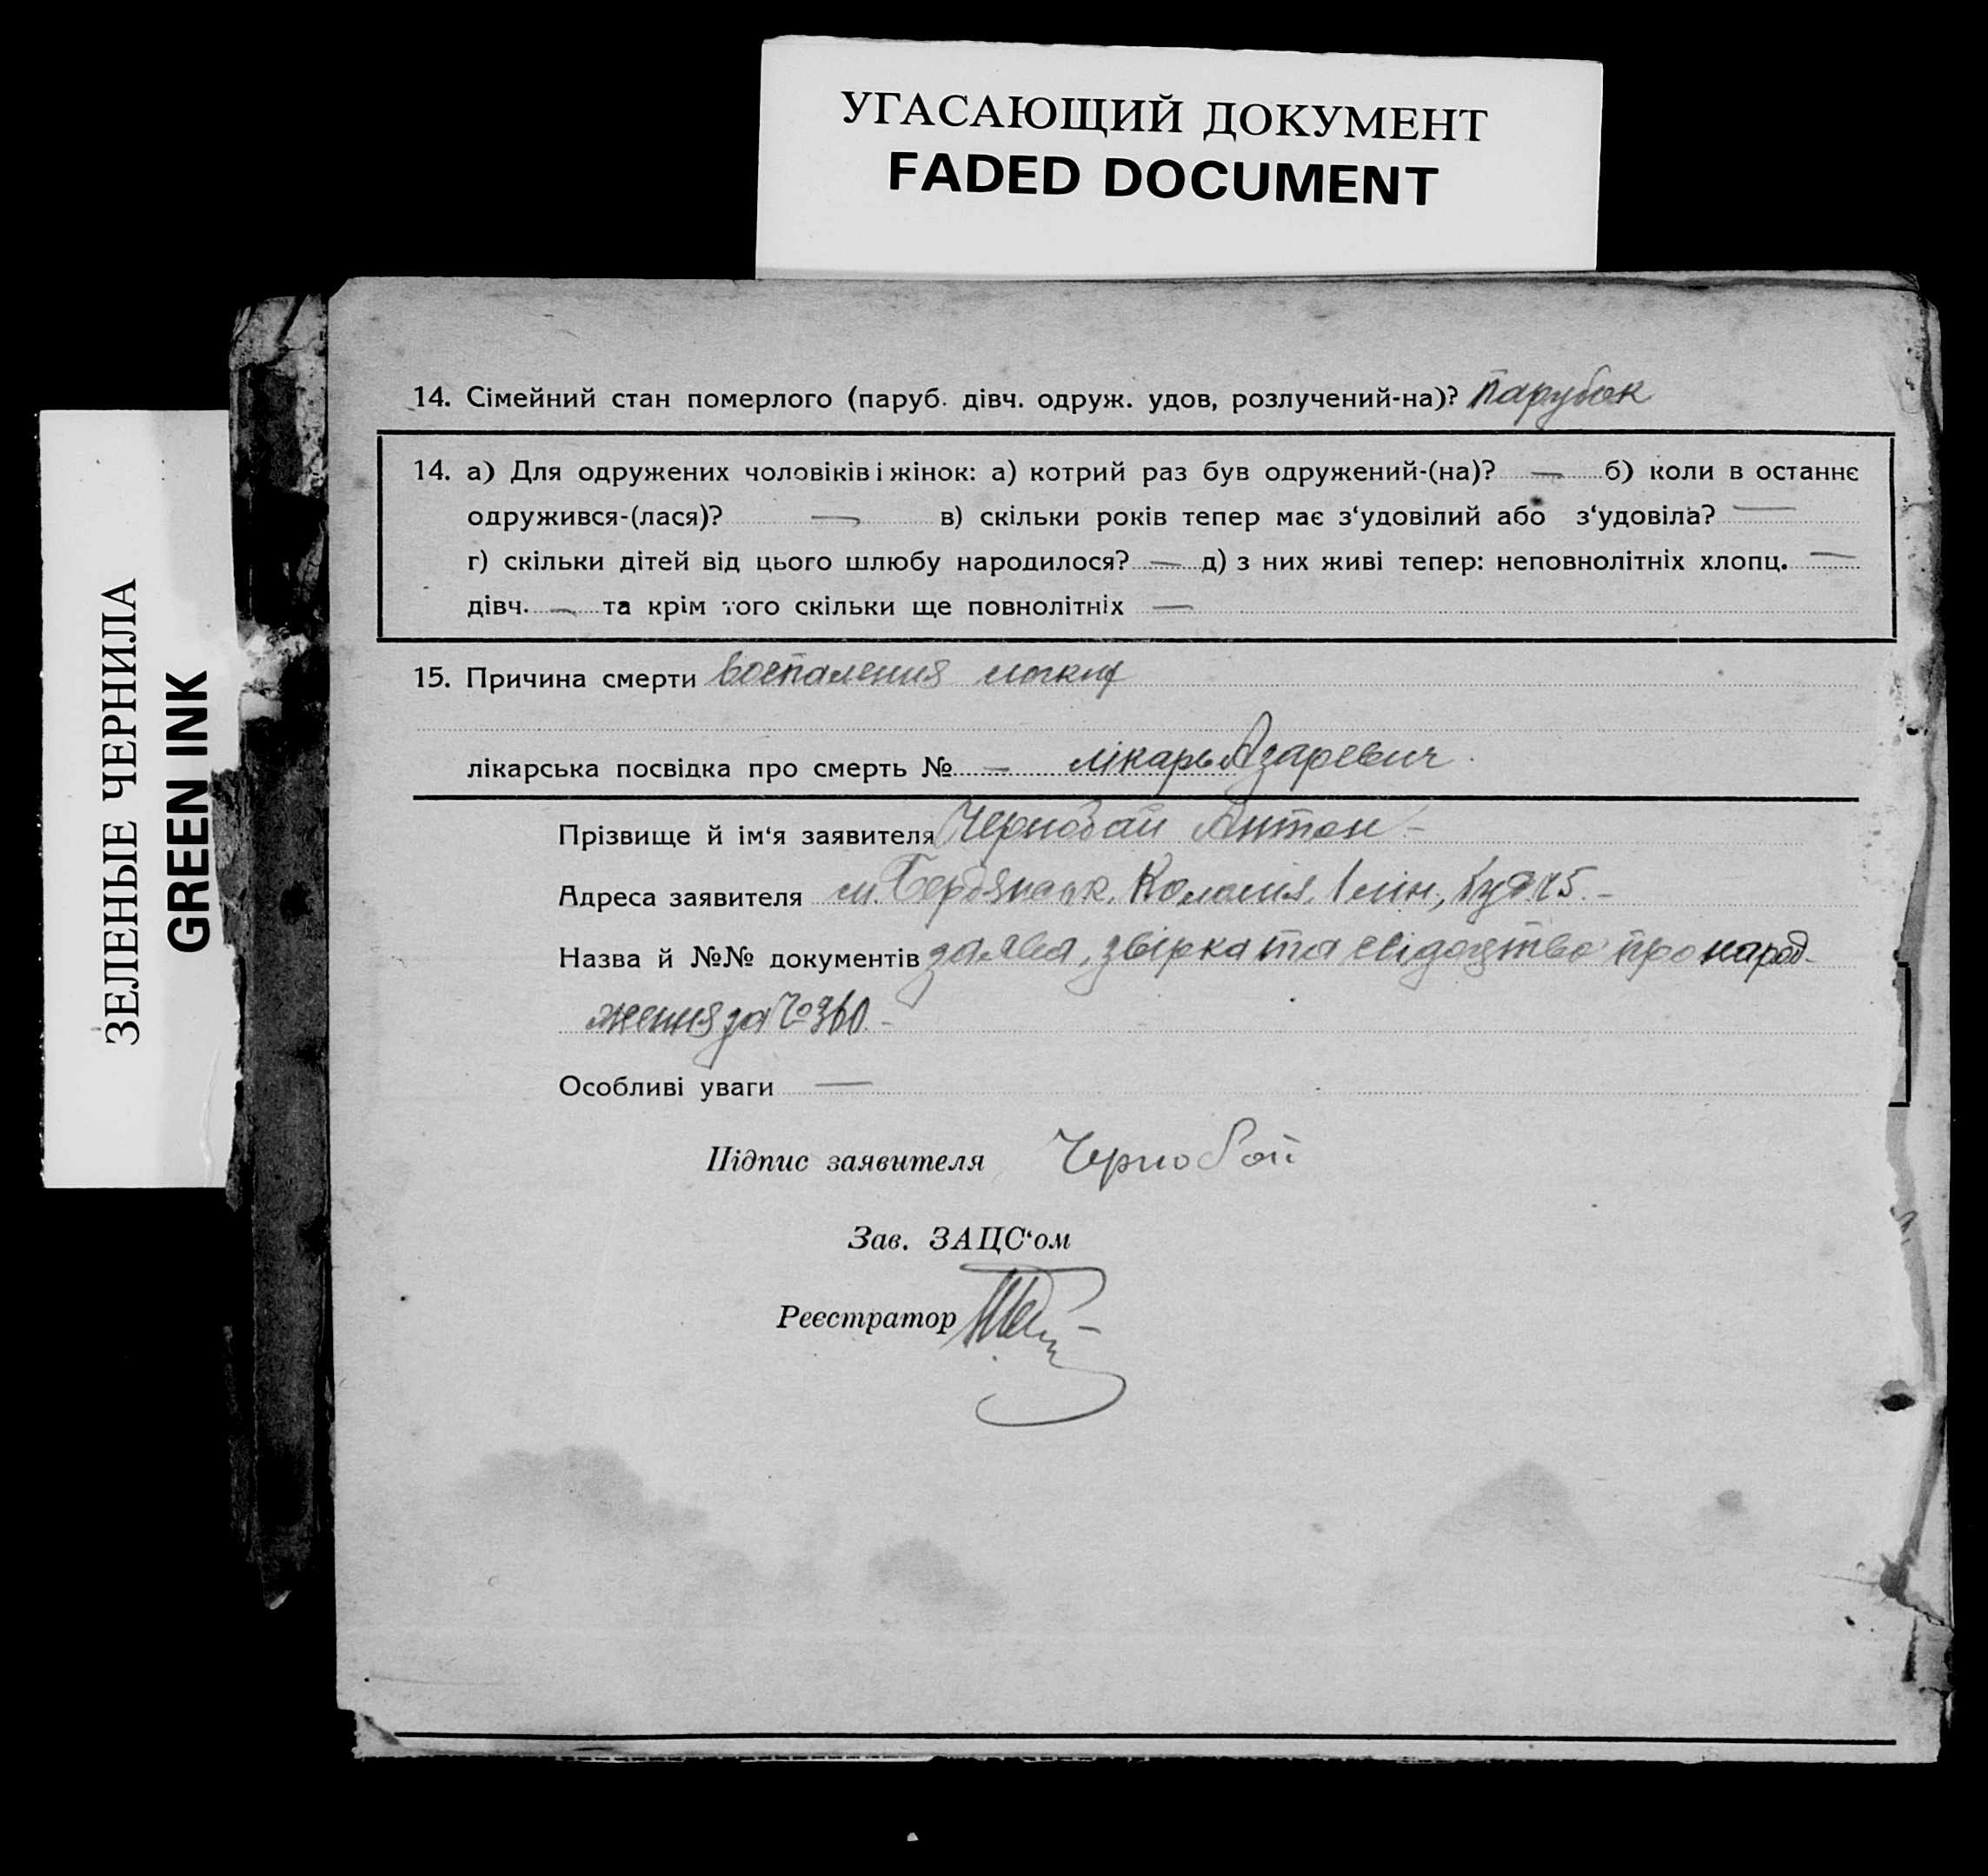 УГАСАЮЩИЙ ДОКУМЕНТ
FADED DOCUMENT
ЗЕЛЕНЫЕ ЧЕРНИЛА
GREEN INK
14. Сімейний стан померлого (паруб. дівч. одруж. удов, розлучений-на)? парубок
14. а) Для одружених чоловіків і жінок: а) котрий раз був одружений-(на)? — б) коли в останнє
одружився-(лася)? — в) скільки років тепер має з‘удовілий або з‘удовіла? —
г) скільки дітей від цього шлюбу народилося? — д) з них живі тепер: неповнолітніх хлопц. —
дівч. — та крім того скільки ще повнолітніх —
15. Причина смерти воспаления
лікарська посвідка про смерть № — лікарь Азаревич.
Прізвище й ім‘я заявителя Чернобай Антон –
Адреса заявителя м. Колонія, 1 лін, буд. 45. –
Назва й №№ документів заява, звірка та свідоцтво про народ-
ження за № 360. –
Особливі уваги —
Підпис заявителя Чернобай
Зав. ЗАЦС‘ом
Реєстратор